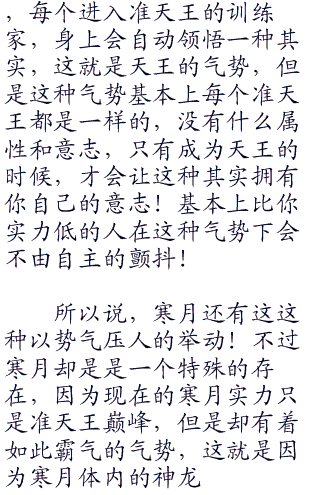 ，每个进入准天王的训练
家，身上会自动领悟一种其
实，这就是天王的气势，但
是这种气势基本上每个准天
王都是一样的，没有什么属
性和意志，只有成为天王的
时候，才会让这种其实拥有
你自己的意志！基本上比你
实力低的人在这种气势下会
不由自主的颤抖！
所以说，寒月还有这这
种以势气压人的举动！不过
寒月却是是一个特殊的存
在，因为现在的寒月实力只
是准天王巅峰，但是却有着
如此霸气的气势，这就是因
为寒月体内的神龙